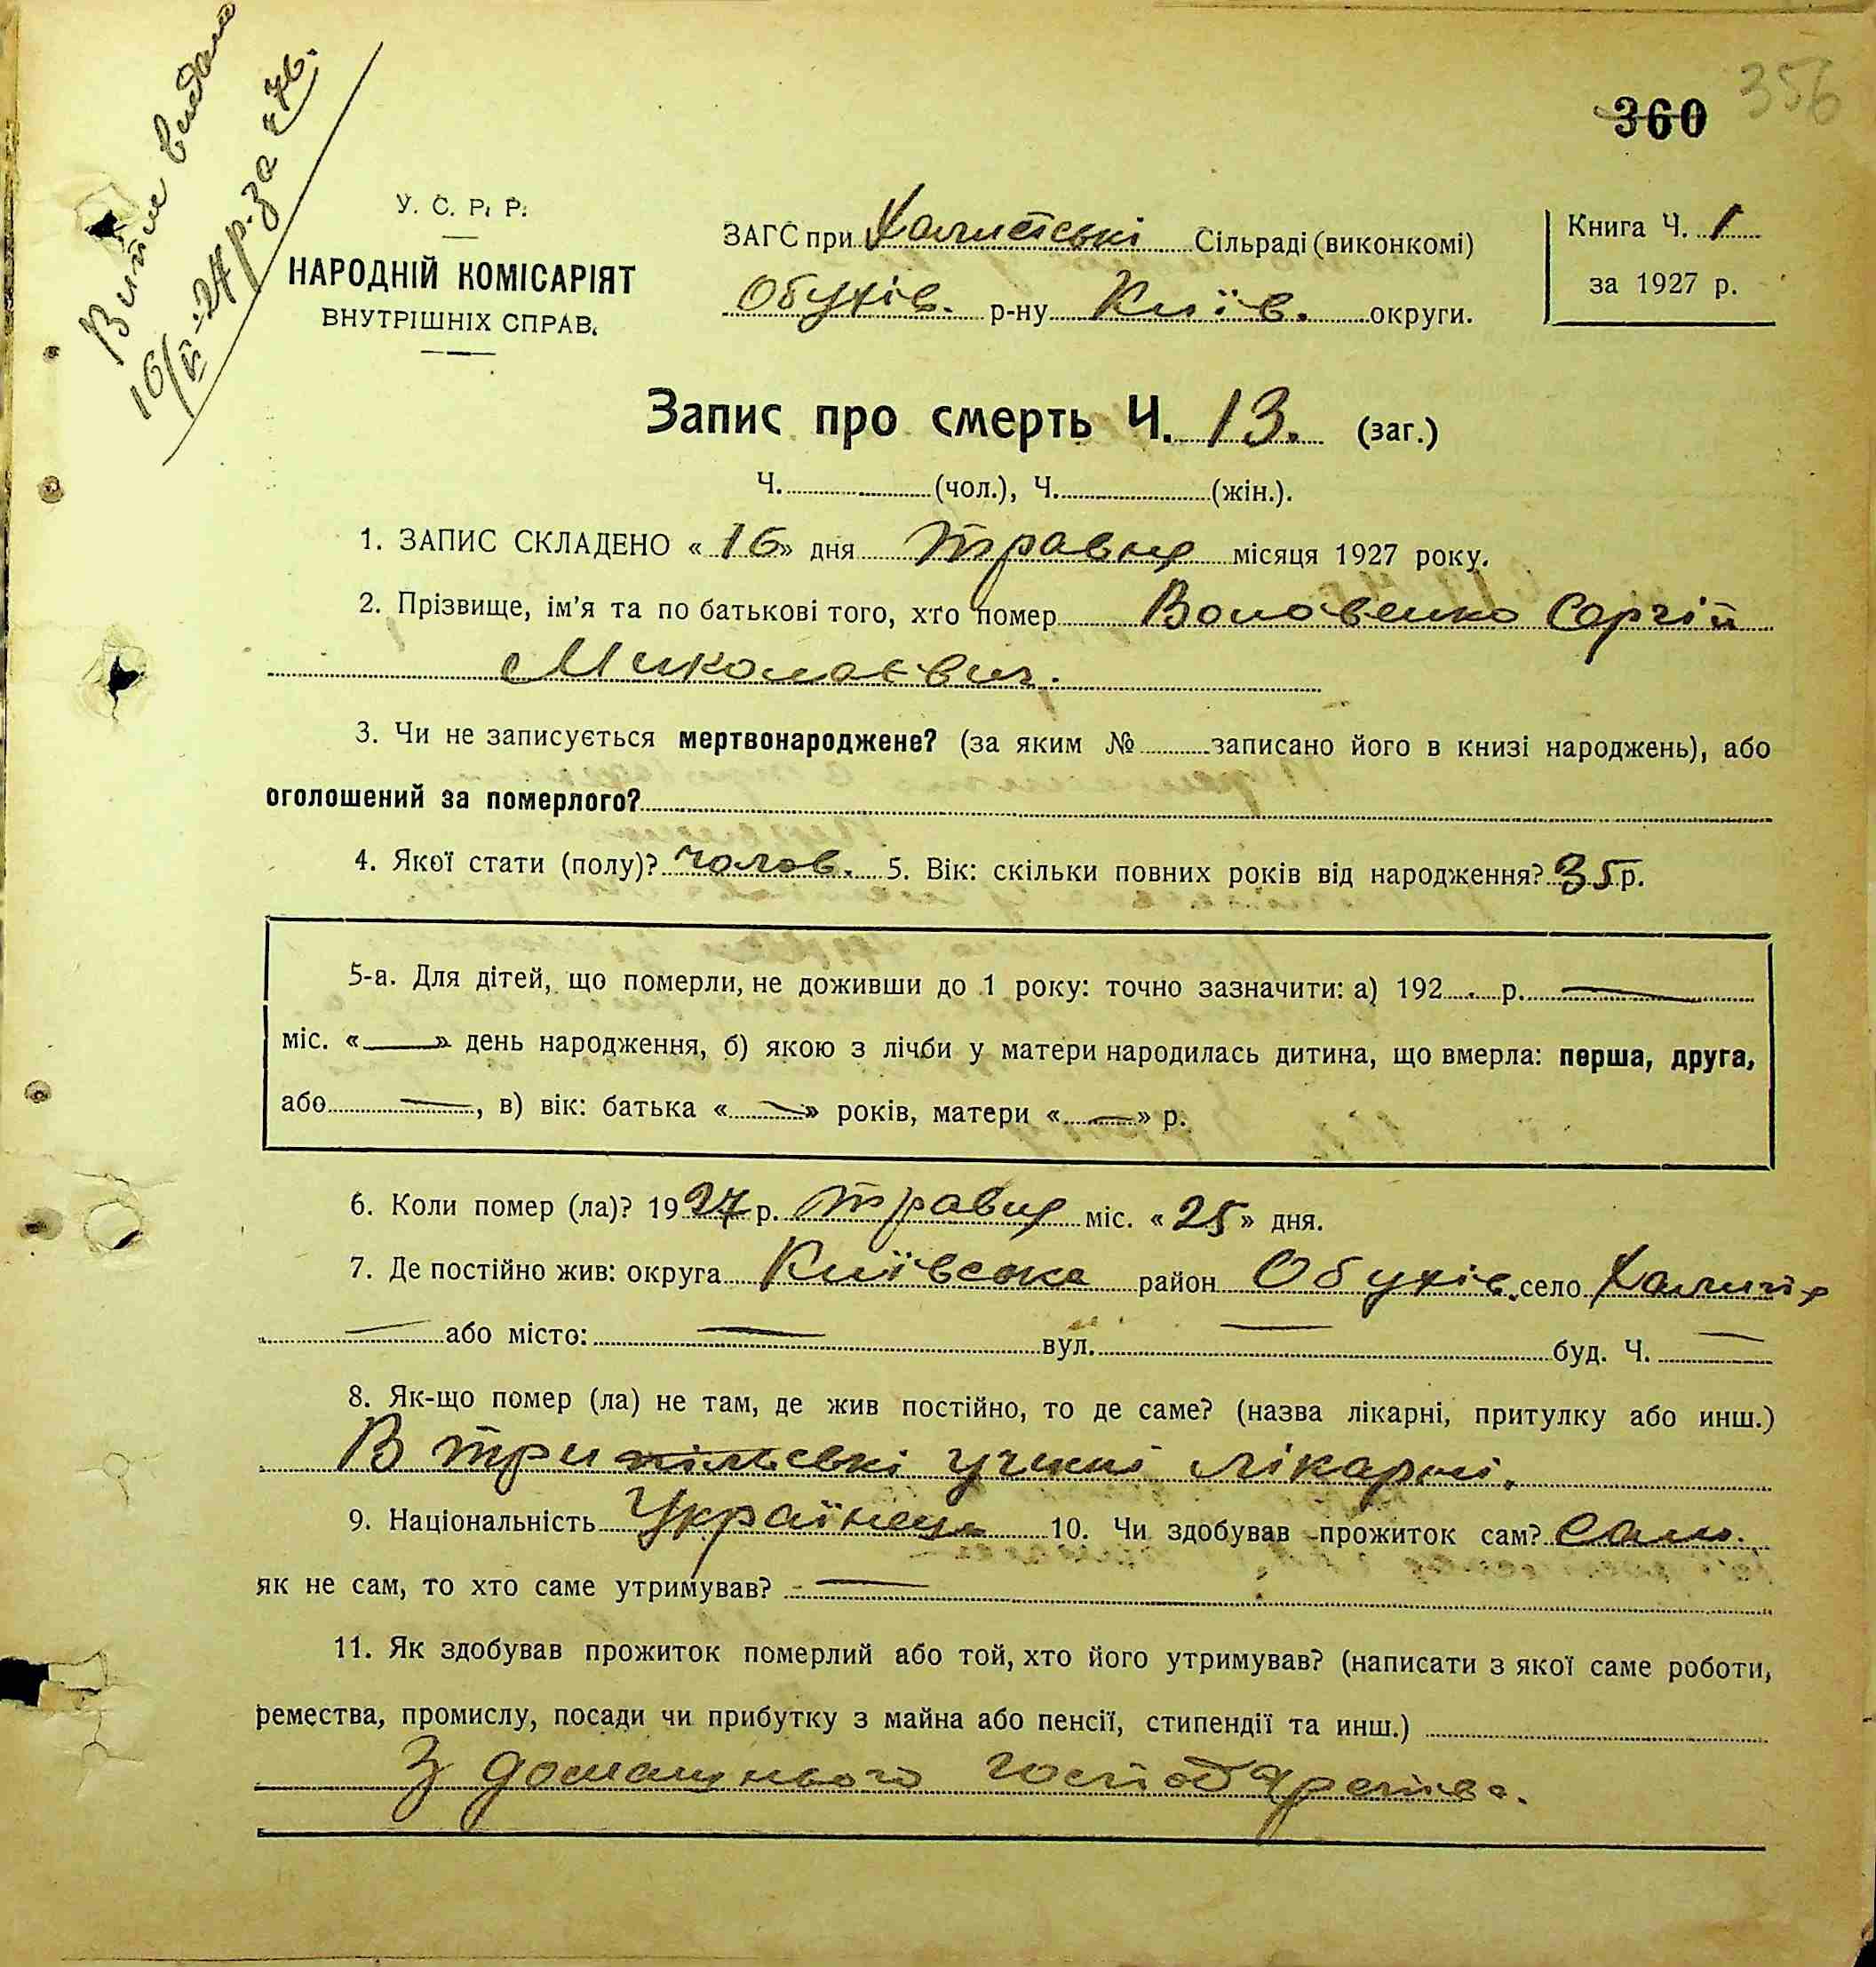 Витяг видано
16/V-27 р. за ч 76.
360 356
У. С. Р. Р.
НАРОДНІЙ КОМІСАРІЯТ
ВНУТРІШНІХ СПРАВ.
ЗАГС при Халипські Сільраді (виконкомі)
Обухів. р-ну Київ. округи.
Книга Ч. 1
за 1927 р.
Запис про смерть Ч. 13. (заг.)
Ч. (чол.), Ч. (жін.).
1. ЗАПИС СКЛАДЕНО « 16 » дня травня місяця 1927 року.
2. Прізвище, ім’я та по батькові того, хто помер Воловенко Сергій
Миколаєвич.
3. Чи не записується мертвонароджене? (за яким № записано його в книзі народжень), або
оголошений за померлого?
4. Якої стати (полу)? чолов. 5. Вік: скільки повних років від народження? 35 р.
5-а. Для дітей, що померли, не доживши до 1 року: точно зазначити: а) 192 . р. —
міс. «—» день народження, б) якою з лічби у матери народилась дитина, що вмерла: перша, друга,
або —, в) вік: батька «—» років, матери «—» р.
6. Коли помер (ла)? 1927 р. травня міс. «25» дня.
7. Де постійно жив: округа Київська район Обухів. село Халипя
— або місто: — вул. — буд. Ч. —
8. Як-що помер (ла) не там, де жив постійно, то де саме? (назва лікарні, притулку або инш.)
В трипільскі учні лікарні.
9. Національність Українець 10. Чи здобував прожиток сам? Сам.
як не сам, то хто саме утримував? —
11. Як здобував прожиток померлий або той, хто його утримував? (написати з якої саме роботи,
ремества, промислу, посади чи прибутку з майна або пенсії, стипендії та инш.)
З домашнього господарства.